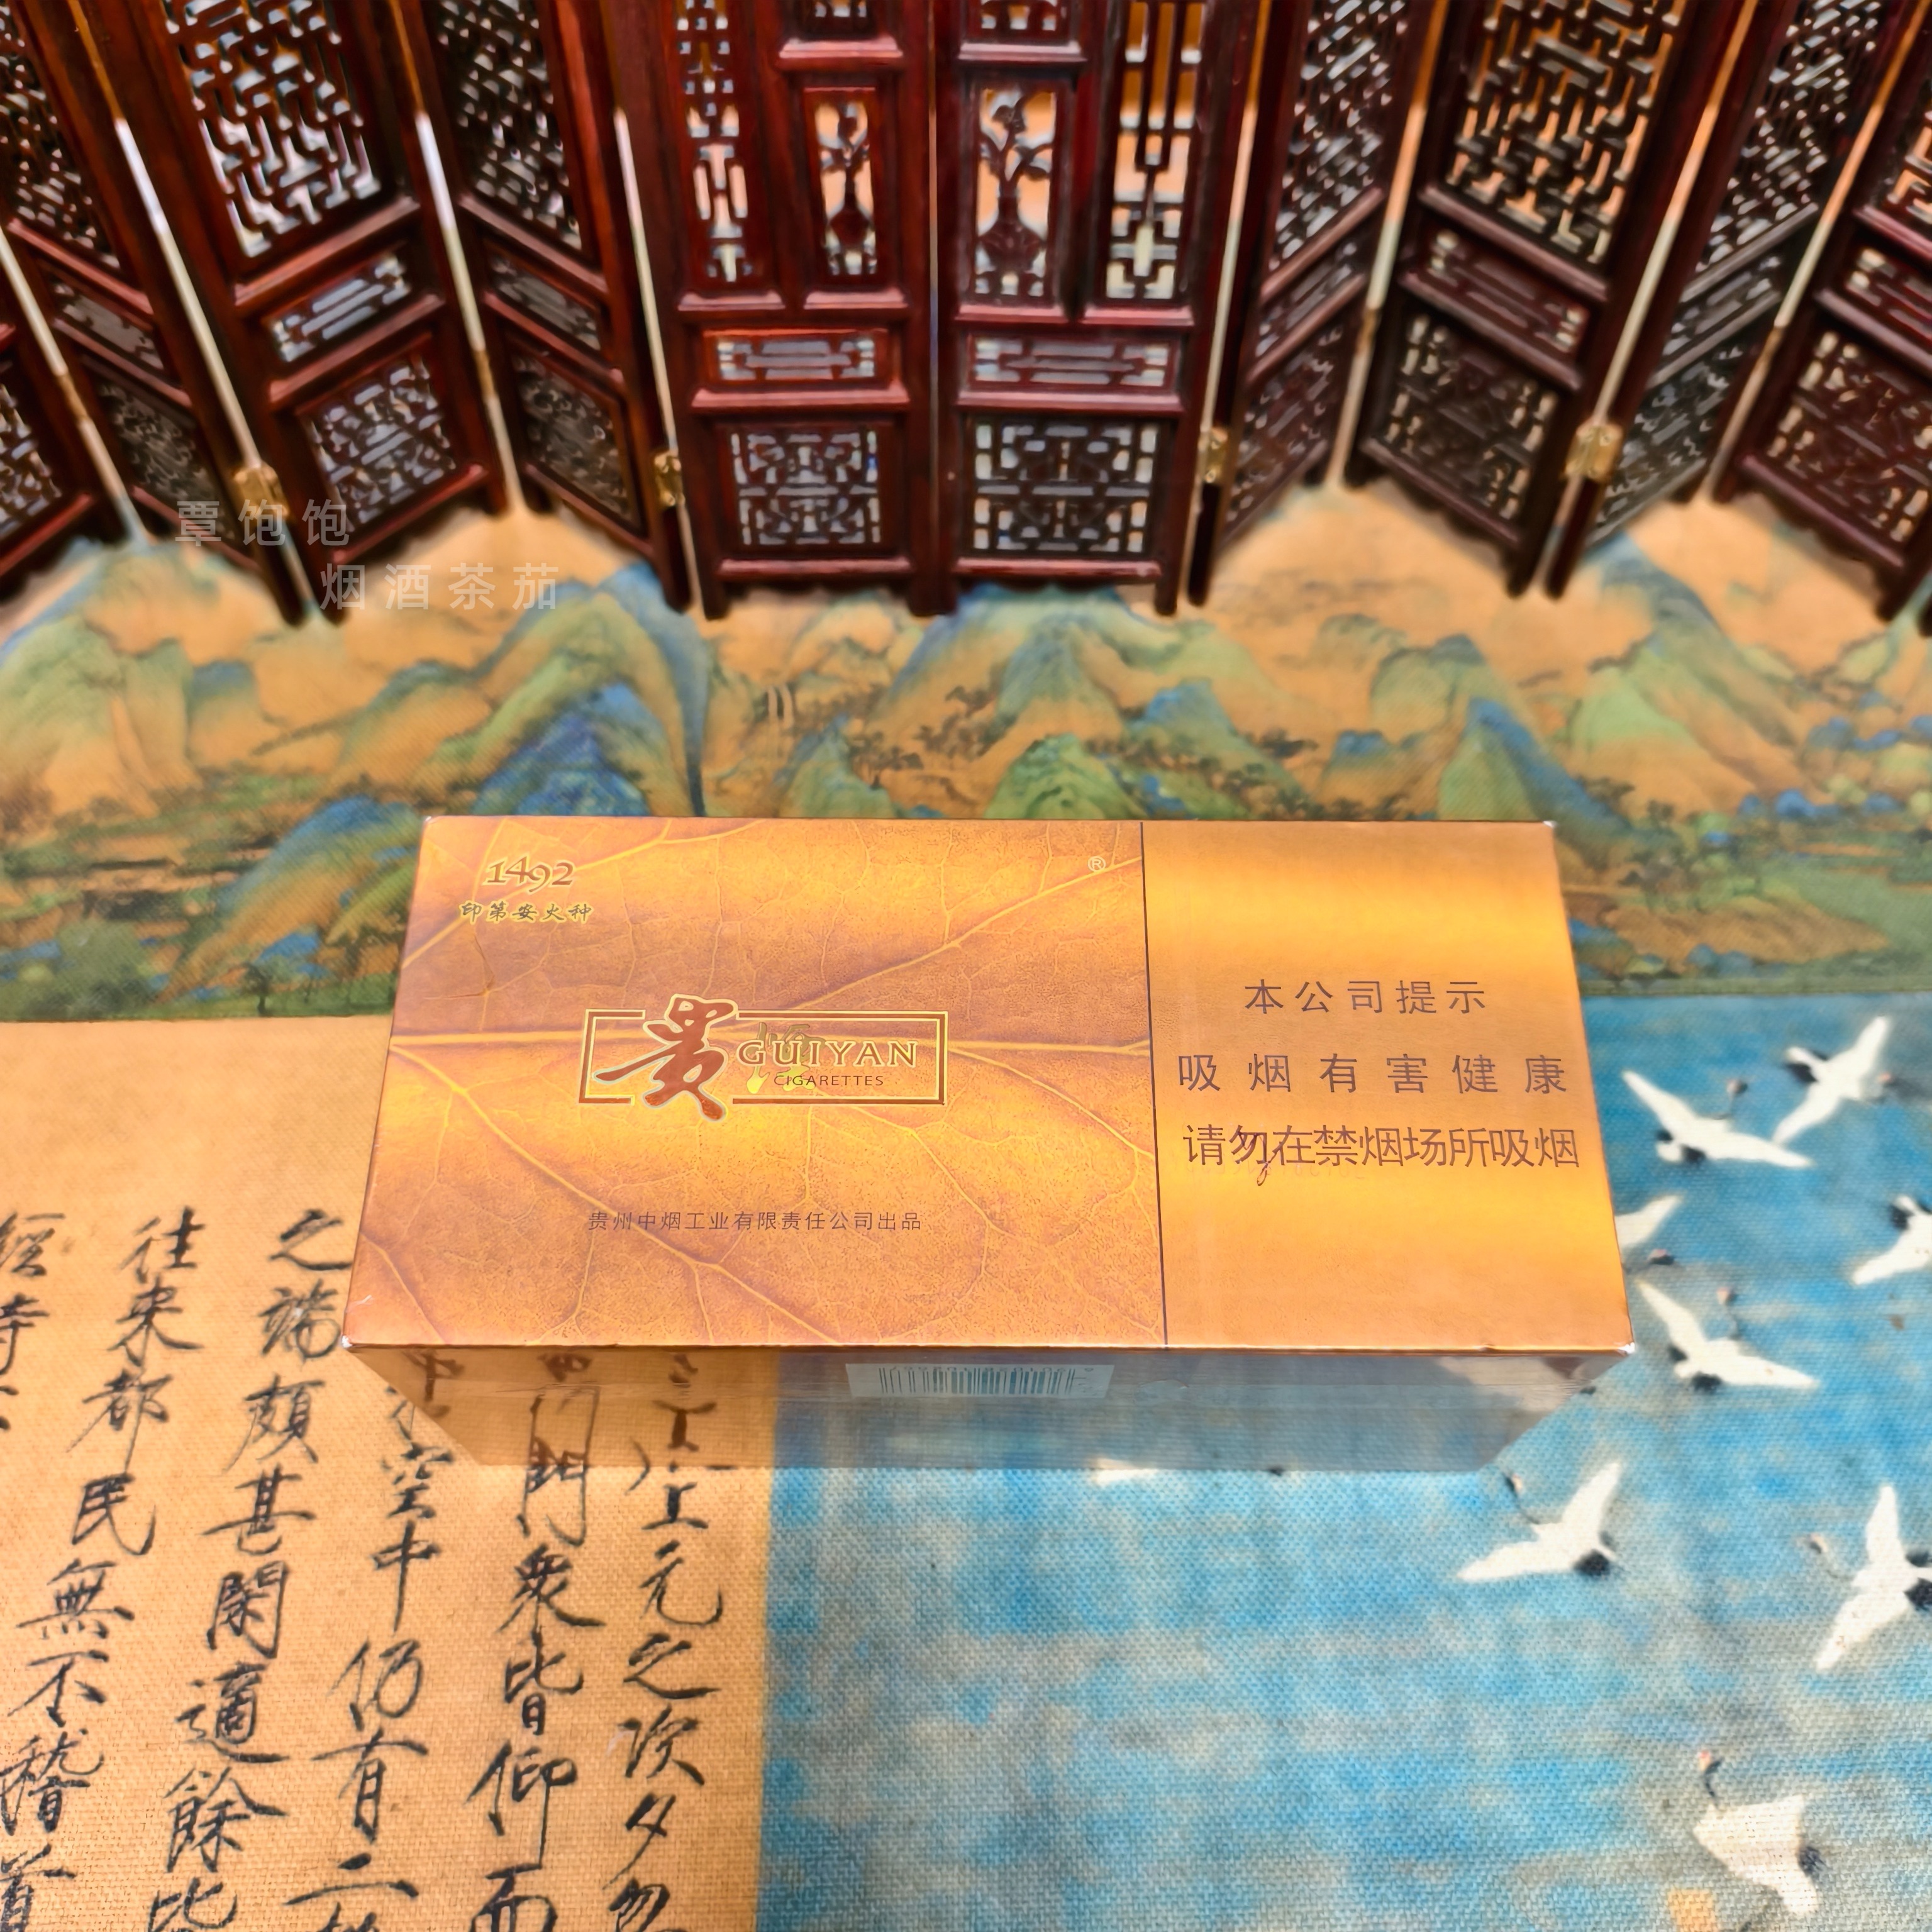 覃饱饱
烟酒茶茄
1492
印第安火种
®
贵烟
GUIYAN
CIGARETTES
贵州中烟工业有限责任公司出品
本公司提示
吸烟有害健康
请勿在禁烟场所吸烟
上元之次夕
門眾皆仰而
空中仍有二
之端頗甚閑適餘比
往来都民無不稽首